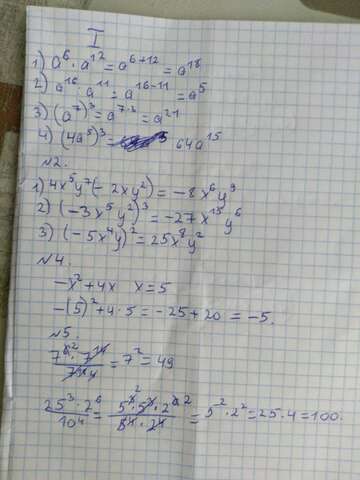 I
1) a⁶ · a¹² = a⁶⁺¹² = a¹⁸
2) a¹⁶ : a¹¹ = a¹⁶⁻¹¹ = a⁵
3) (a⁷)³ = a⁷·³ = a²¹
4) (4a⁵)³ = 64a¹⁵
№2.
1) 4x⁵y⁷(-2xy²) = -8x⁶y⁹
2) (-3x⁵y²)³ = -27x¹⁵y⁶
3) (-5x⁴y)² = 25x⁸y²
№4.
-x²+4x x=5
-(5)²+4·5 = -25+20 = -5.
№5.
= 7² = 49
25³·2⁶/10⁴ = = 5²·2² = 25·4 = 100.